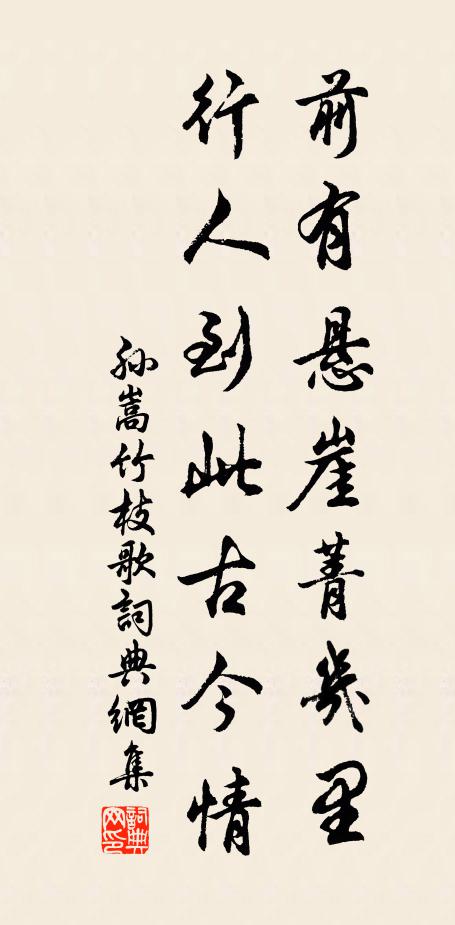 前有悬崖菁几里
行人到此古今情
孙嵩竹枝歌詞典網集
詞典网印